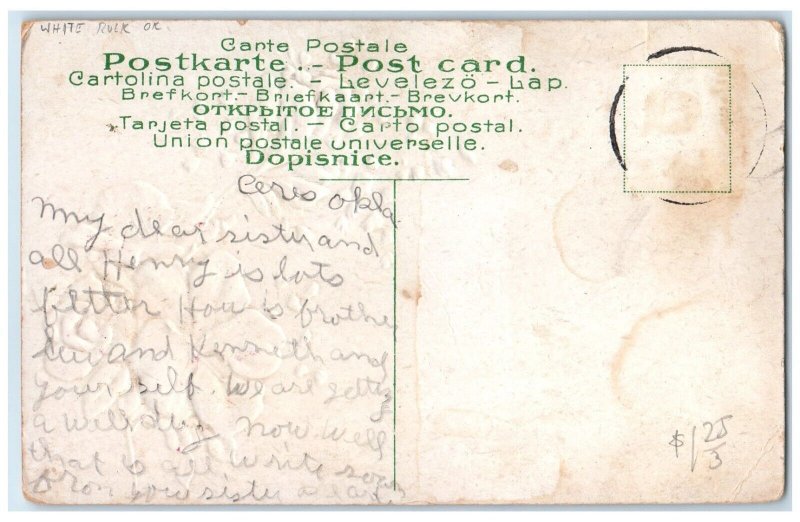 WHITE ROCK OK.
Carte Postale
Postkarte. - Post card.
Cartolina postale. - Levelező - Lap.
Brefkort. - Briefkaart. - Brevkort.
ОТКРЫТОЕ ПИСЬМО.
Tarjeta postal. - Carto postal.
Union postale universelle.
Dopisnice.
Ceres Okla
My dear sister and
all Henry is lots
better How is brothe
and Kenneth and
your self. We are getting
a well dug now well
that is all write soon
from your sister
$1 25
3